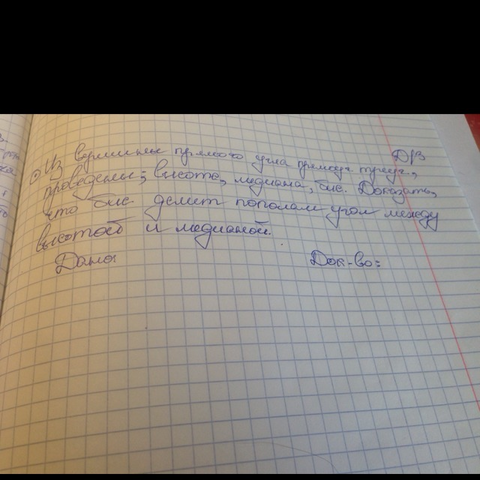 Д/З
Из вершины прямого угла прямоуг. треуг.,
проведены; высота, медиана, бис. Доказать,
что бис делит пополам угол между
высотой и медианой.
Дано: Док-во: